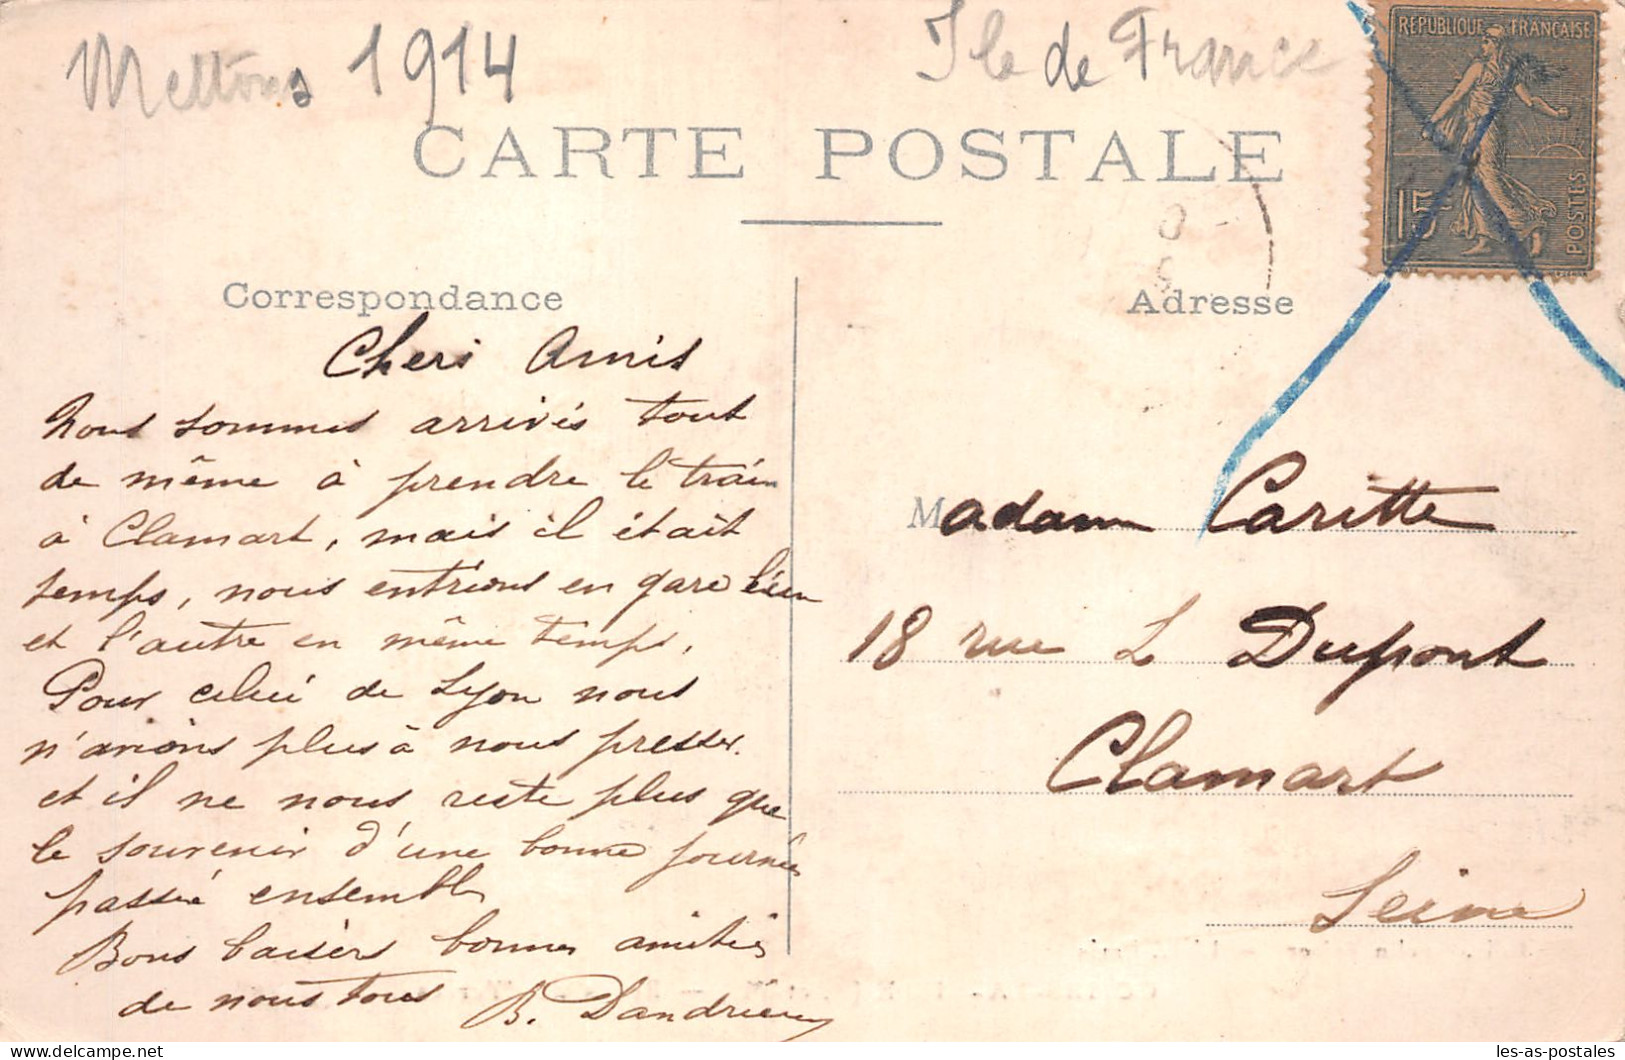 1914
Ile de France
REPUBLIQUE FRANCAISE
15c
POSTES
CARTE POSTALE
Correspondance
Adresse
Chers Amis
Nous sommes arrivés tout
de même à prendre le train
à Clamart, mais il était
temps, nous entrions en gare l'un
et l'autre en même temps.
Pour celui de Lyon nous
n'avions plus à nous presser.
et il ne nous reste plus que
le souvenir d'une bonne journée
passée ensemble
Bons baisers bonnes amitiés
de nous tous
B. Dandrieu
Madame Caritte
18 rue L Dupont
Clamart
Seine
les-as-postales